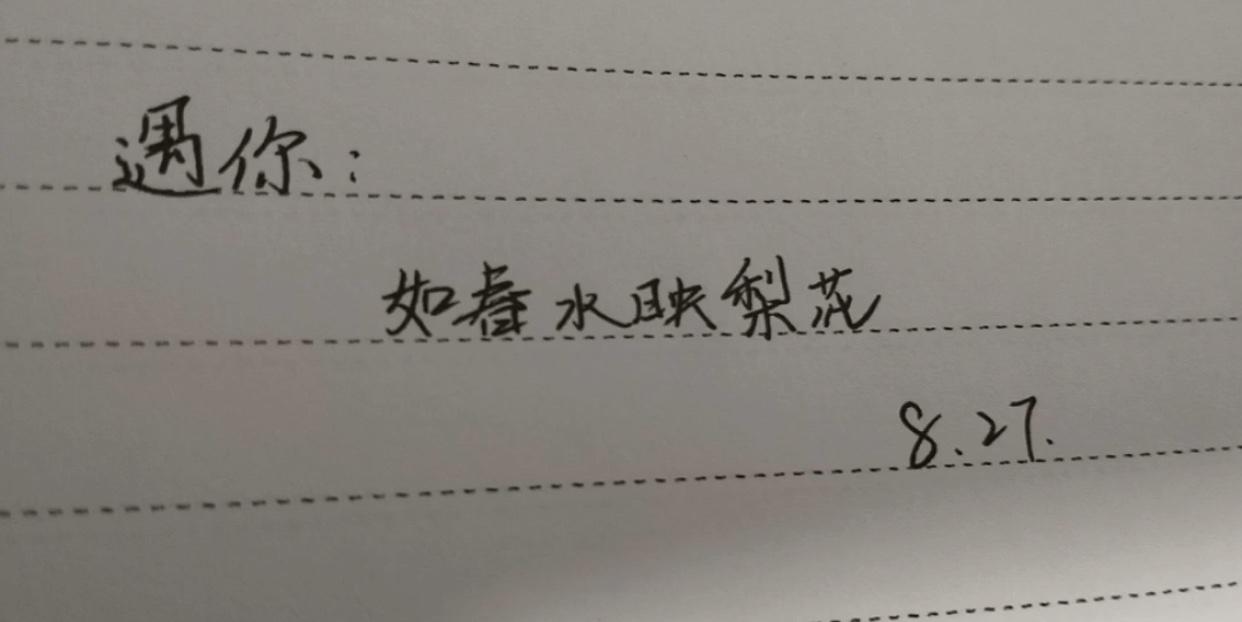 遇你：
如春水映梨花
8.27.